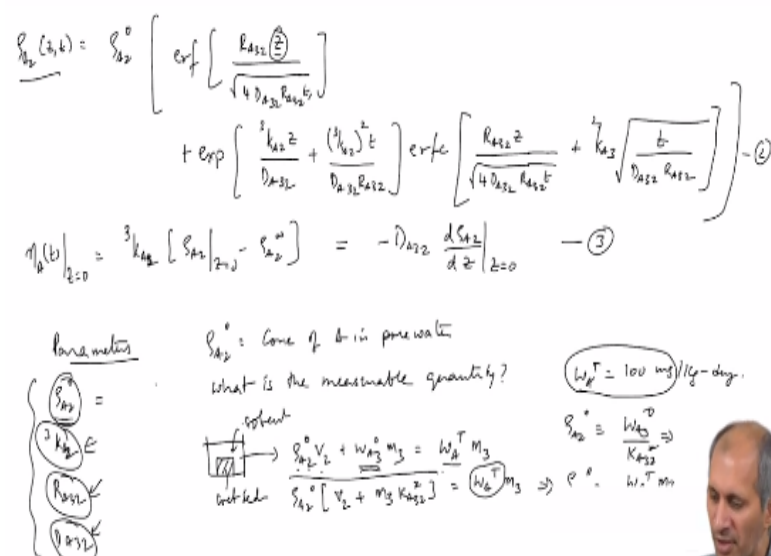 ρ_A2 (z,t) = ρ_A2^0 [ erf [ R_A32 z / √(4 D_A32 R_A32 t) ]
+ exp [ ³k_A2 z / D_A32 + (³k_A2)² t / (D_A32 R_A32) ] erfc [ R_A32 z / √(4 D_A32 R_A32 t) + ³k_A3 √( t / (D_A32 R_A32) ) ] ] - ②
n_A(t)|z=0 = ³k_A2 [ ρ_A2|z=0 - ρ_A2^∞ ] = - D_A32 dρ_A2/dz |z=0 - ③
Parameters
ρ_A2^0 =
³k_A2
R_A32
D_A32
ρ_A2^0 : Conc of A in porewater
what is the measurable quantity?
solvent
wet sed
ρ_A2^0 V_2 + w_A3^0 m_3 = W_A^T m_3
ρ_A2^0 [ V_2 + m_3 K_A32^* ] = W_A^T m_3 ⇒ ρ^0 = W^T m
W_A^T = 100 mg/kg-dry.
ρ_A2^0 = W_A3^0 / K_A32^* ⇒